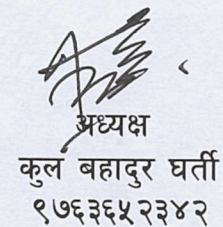 अध्यक्ष
कुल बहादुर घर्ती
९७६३६५२३४२